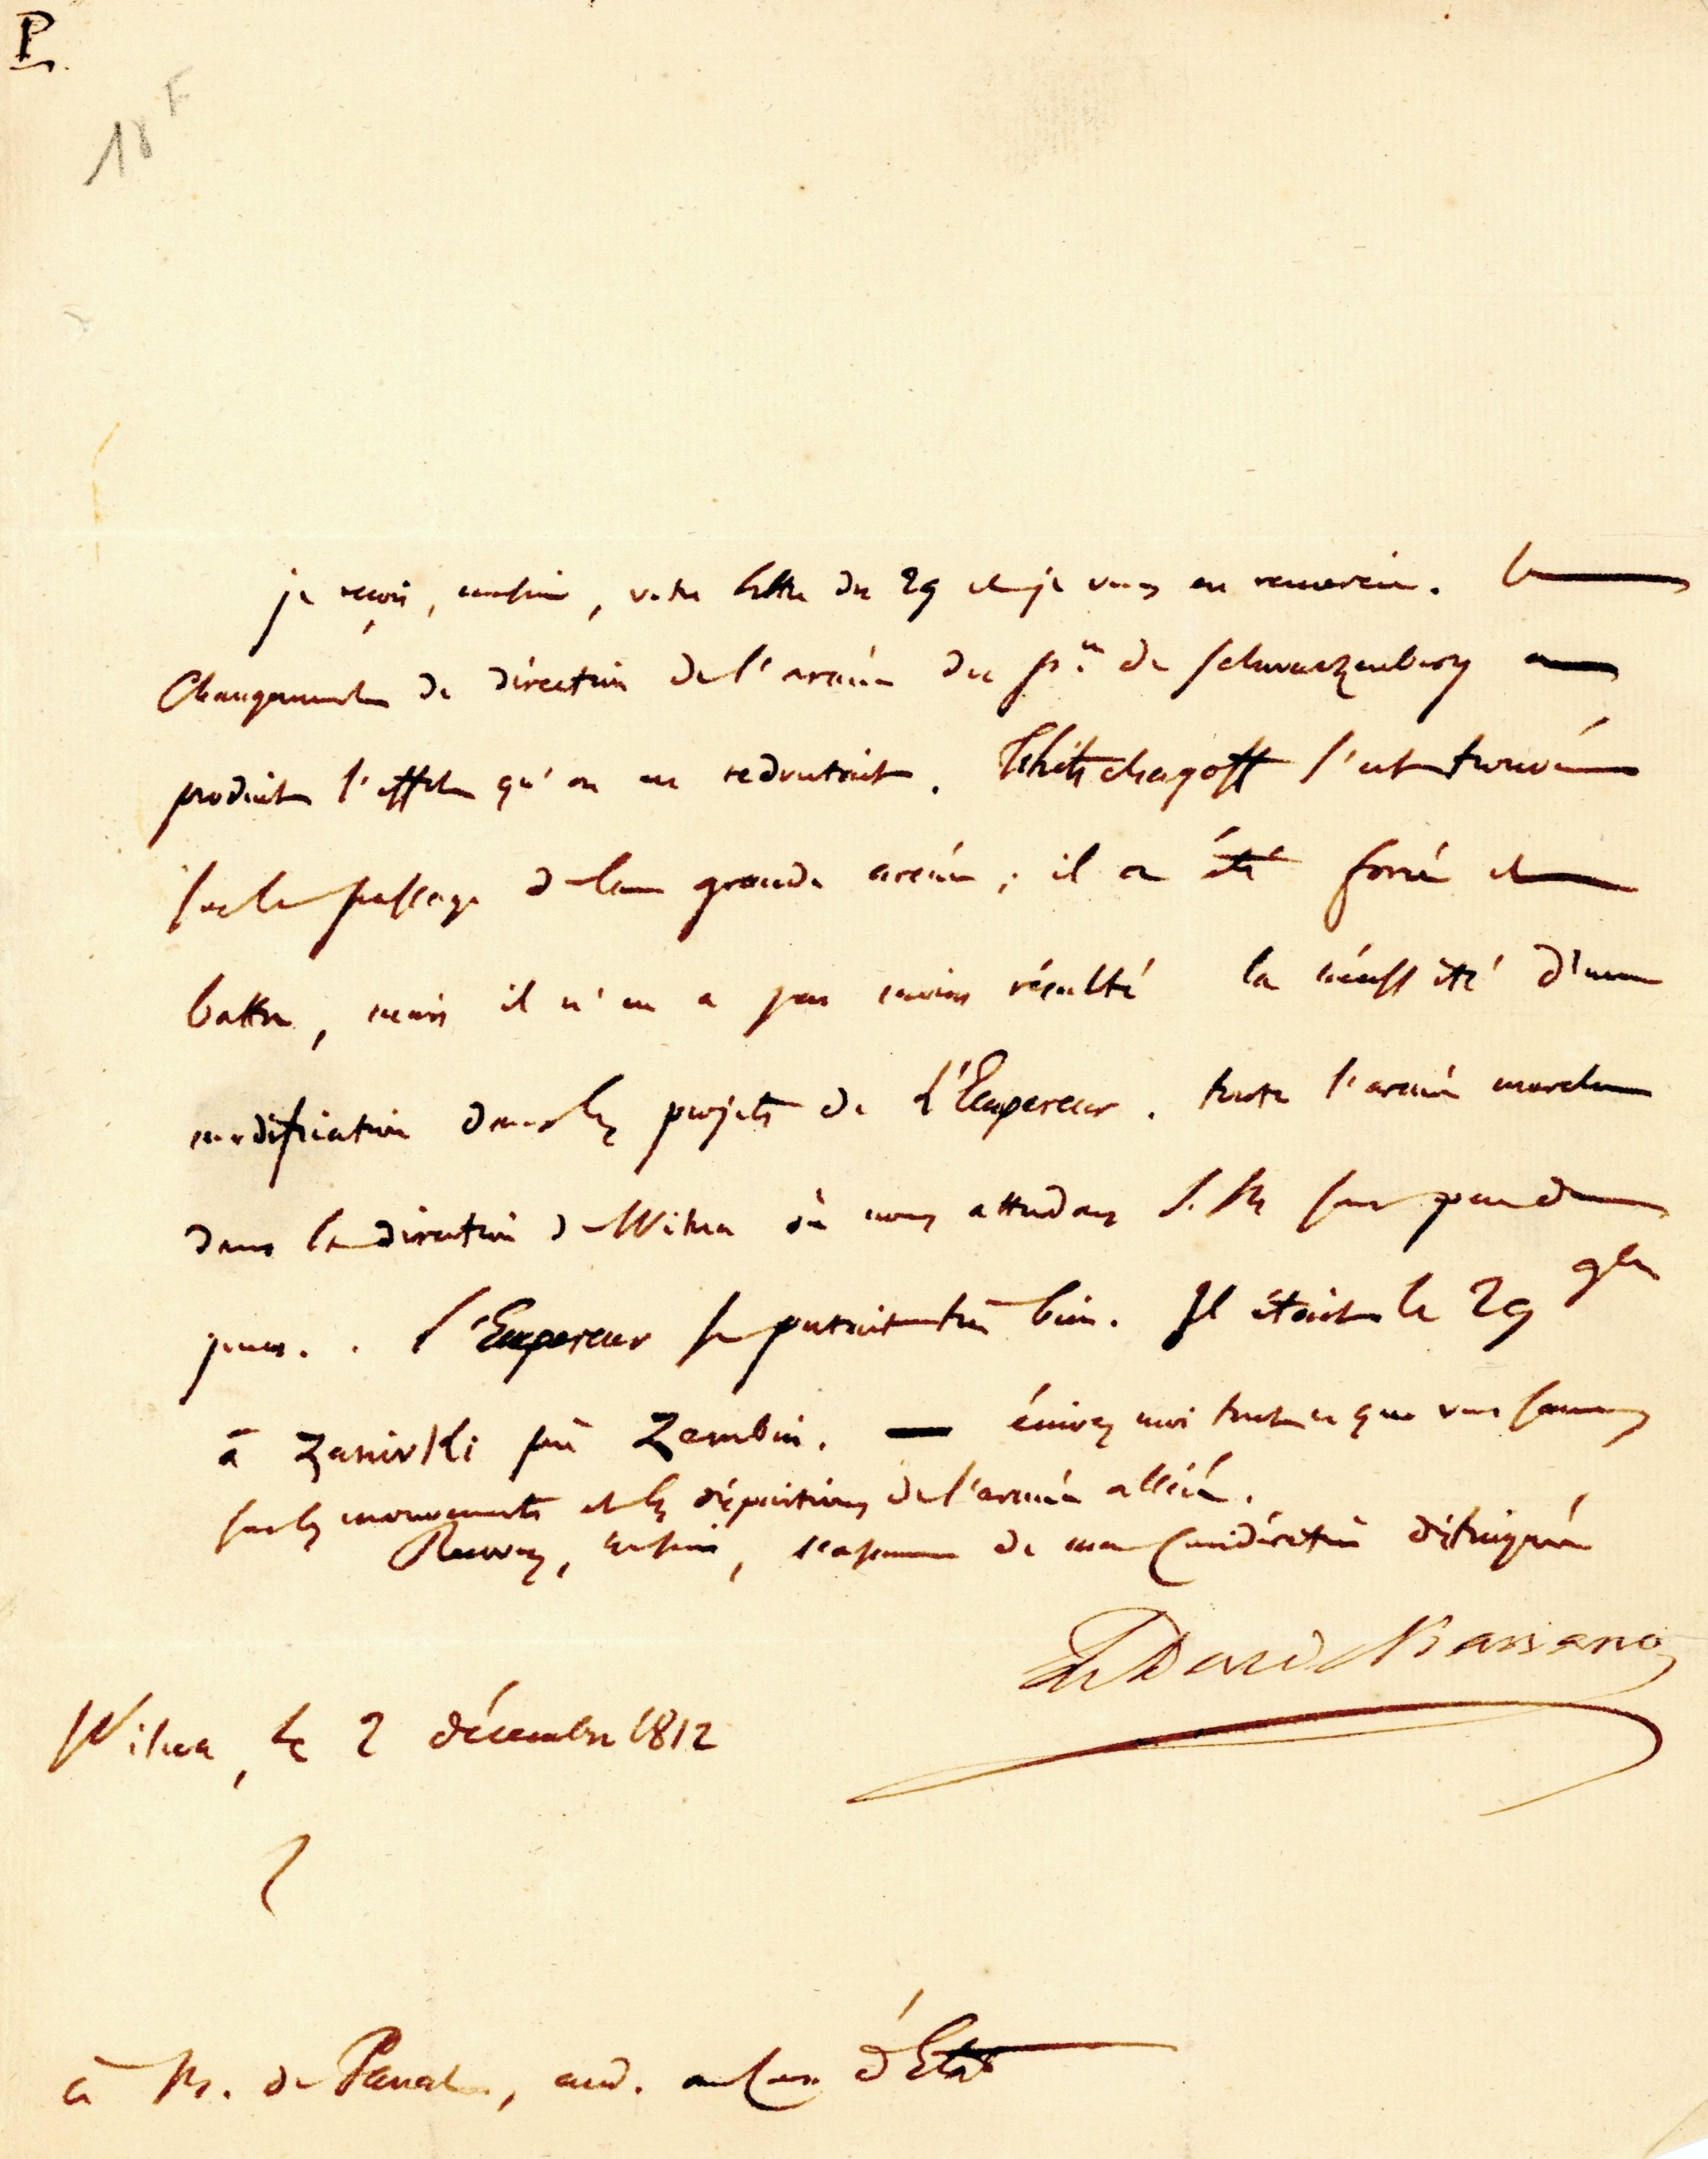 P.
18 F
je reçois, monsieur, votre lettre du 29 et je vous en remercie. le
changement de direction de l'armée du p.ce de Schwarzenberg a
produit l'effet qu'on en redoutait. Tchitchagoff s'est trouvé
sur le passage de la grande armée ; il a été forcé et
battu, mais il n'en a pas moins résulté la nécessité d'une
modification dans les projets de L'Empereur. toute l'armée marche
dans la direction de Wilna où nous attendons S. M. sous peu de
jours. l'Empereur se portait très bien. Il était le 29 9bre
à Zaniwki près Zembin. — écrivez moi tout ce que vous saurez
sur les mouvements et les dispositions de l'armée alliée.
Recevez, monsieur, l'assurance de ma considération distinguée
Le Duc de Bassano
Wilna, le 2 décembre 1812
à M. de Panat, aud. au Con. d'Etat